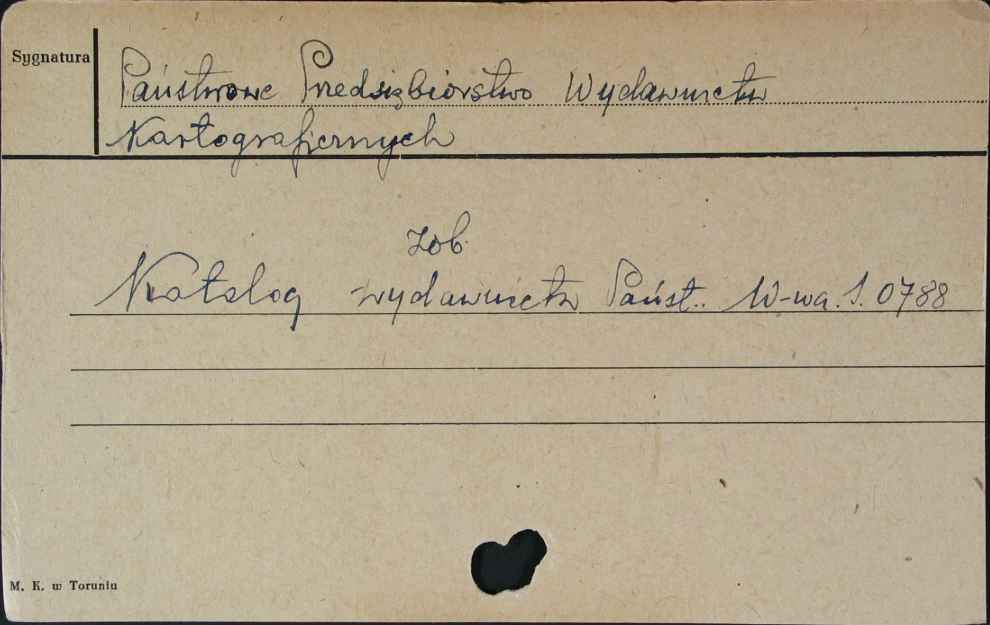 Sygnatura
Państwowe Przedsiębiorstwo Wydawnictw
Kartograficznych
zob.
Katalog wydawnictw Państ.. W-wa. S. 0788
M. K. w Toruniu